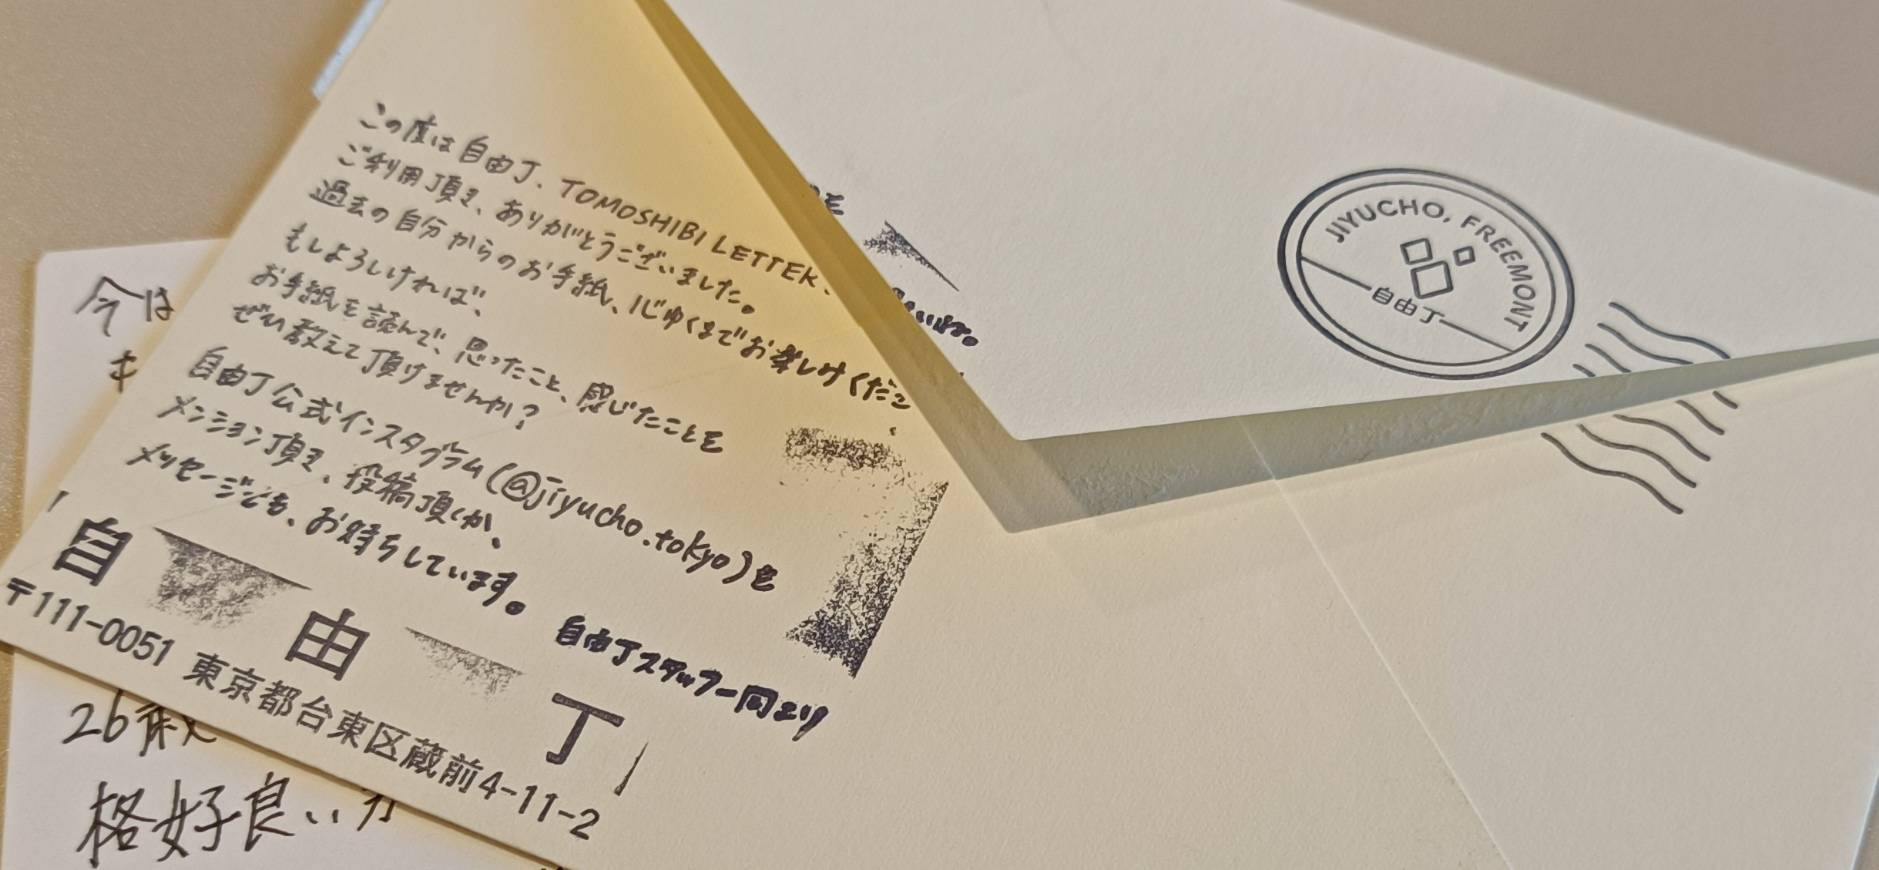 この度は自由丁、TOMOSHIBI LETTER、
ご利用頂き、ありがとうございました。
過去の自分からのお手紙、心ゆくまでお楽しみくださ
もしよろしければ、
お手紙を読んで、思ったこと、感じたことを
ぜひ教えて頂けませんか?
自由丁公式インスタグラム(@jiyucho.tokyo)を
メンション頂き、投稿頂くか、
メッセージでも、お待ちしています。
自由丁スタッフ一同より
自由丁
〒111-0051 東京都台東区蔵前4-11-2
JIYUCHO, FREEMONT
自由丁
今は
26歳
格好良い